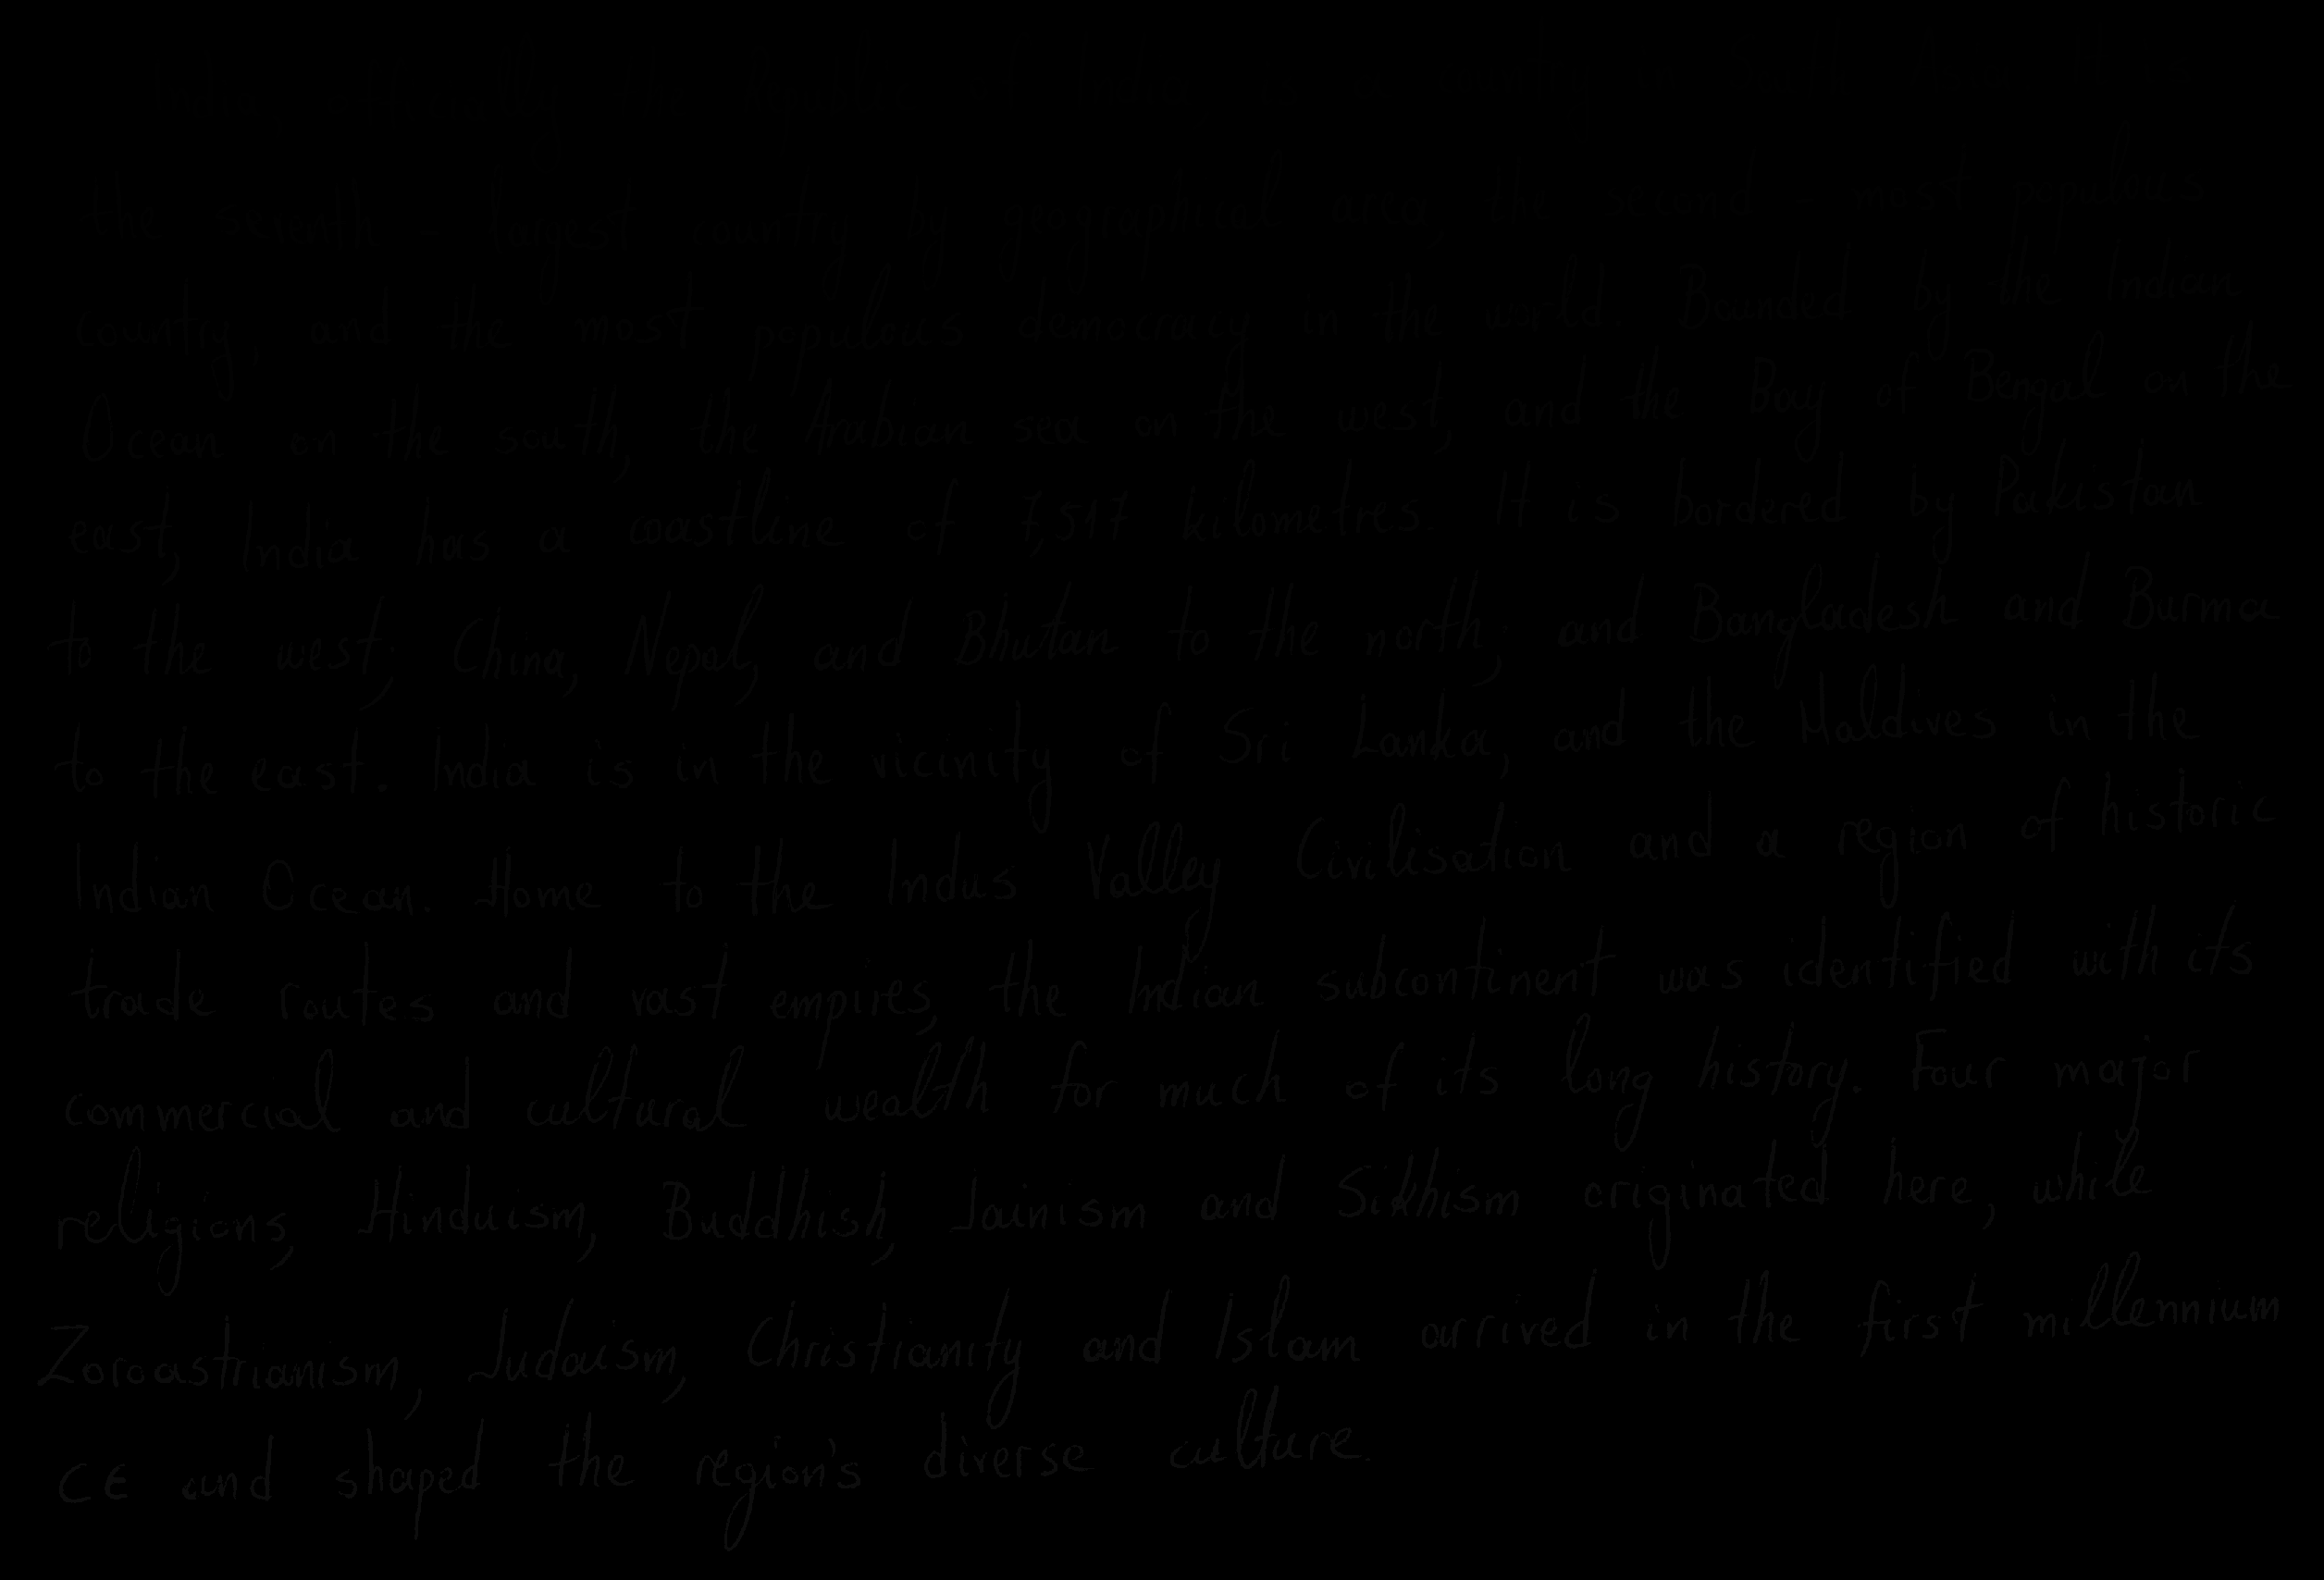 the seventh - largest country by geographical area, the second - most populous
country, and the most populous democracy in the world. Bounded by the Indian
Ocean on the south, the Arabian sea on the west, and the Bay of Bengal on the
east, India has a coastline of 7,517 kilometres. It is bordered by Pakistan
to the west; China, Nepal, and Bhutan to the north; and Bangladesh and Burma
to the east. India is in the vicinity of Sri Lanka, and the Maldives in the
Indian Ocean. Home to the Indus Valley Civilisation and a region of historic
trade routes and vast empires, the Indian subcontinent was identified with its
commercial and cultural wealth for much of its long history. Four major
religions, Hinduism, Buddhish, Jainism and Sikhism originated here, while
Zoroastrianism, Judaism, Christianity and Islam arrived in the first millennium
CE and shaped the region's diverse culture.